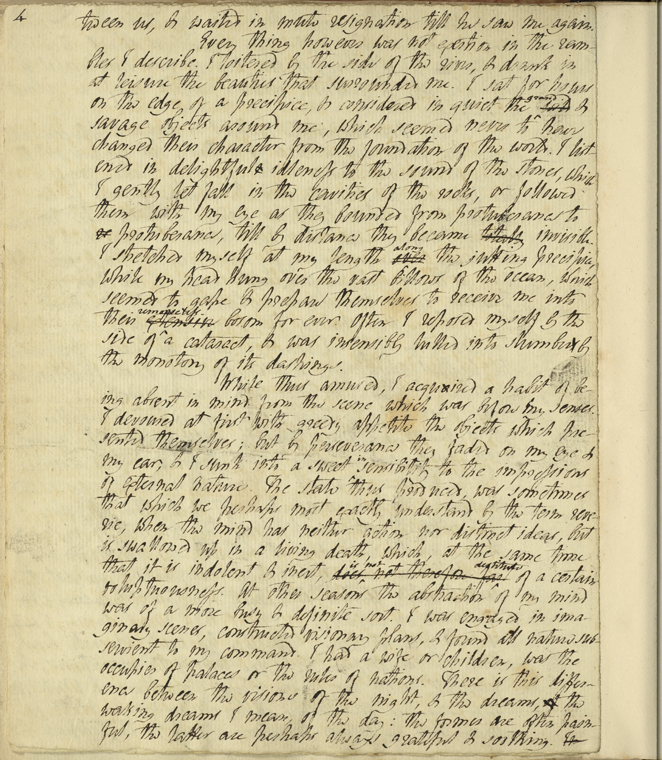 4
tween us, & waited in mute resignation till he saw me again.
Every thing however was not exertion in the ram-
bles I describe. I loitered by the side of the river, & drank in
at leisure the beauties that surrounded me. I sat for hours
on the edge of a precipice, & considered in quiet the grand &
savage objects around me, which seemed never to have
changed their character from the foundation of the world. I list-
ened in delightful idleness to the sound of the stones, which
I gently let fall in the cavities of the rocks, or followed
them with my eye as they bounded from protuberance to
protuberance, till by distance they became totally invisible.
I stretched myself at my length along over the jutting precipice,
while my head hung over the vast billows of the ocean, which
seemed to gape & prepare themselves to receive me into
their remorseless bosom for ever. Often I reposed myself by the
side of a cataract, & was insensibly lulled into slumber by
the monotony of its dashings.
While thus amused, I acquired a habit of be-
ing absent in mind from the scene which was before my senses.
I devoured at first with greedy appetite the objects which pre-
sented themselves; but by perseverance they faded on my eye &
my ear, & I sunk into a sweet insensibility to the impressions
of external nature. The state thus produced, was sometimes
that which we perhaps most exactly understand by the term reve-
rie, when the mind has neither action nor distinct ideas, but
is swallowed up in a living death, which, at the same time
that it is indolent & inert, is not destitute does not therefore of a certain
voluptuousness. At other seasons the abstraction of my mind
was of a more busy & definite sort. I was engaged in ima-
ginary scenes, constructed visionary plans, & found all nature sub-
servient to my command. I had a wife or children, was the
occupier of palaces or the ruler of nations. There is this differ-
ence between the visions of the night, & the dreams, of the
waking dreams I mean, of the day: the former are often pain-
ful, the latter are perhaps always grateful & soothing. In